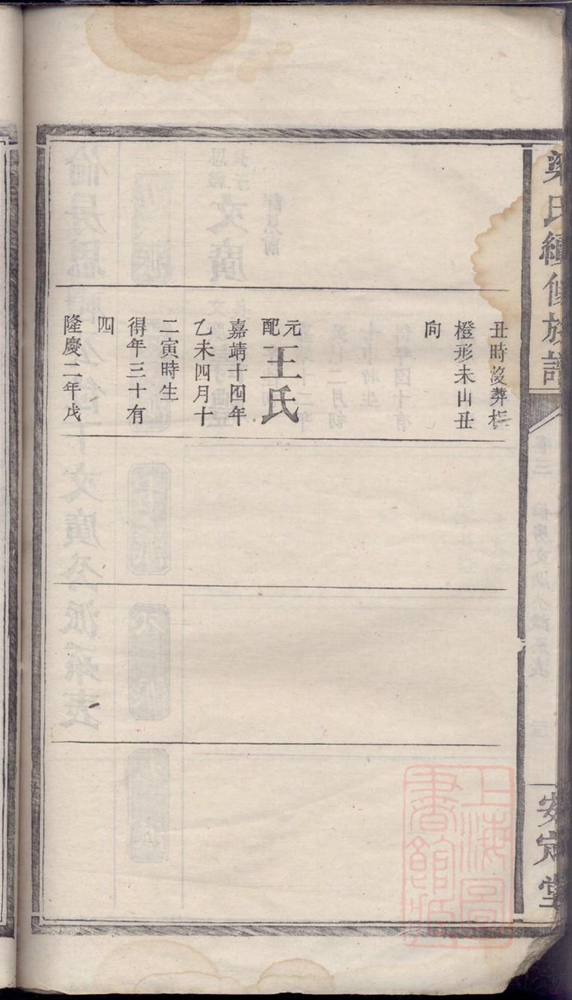 梁氏續修族譜
丑時歿葬栎
橙形未山丑
向
元配王氏
嘉靖十四年
乙未四月十
二寅時生
得年三十有
四
隆慶二年戊
安定堂
上海圖書館藏